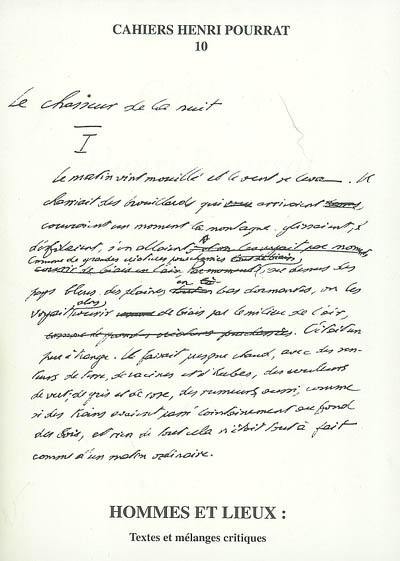 CAHIERS HENRI POURRAT
10
Le chasseur de la nuit
I
Le matin vint mouillé et le vent se leva. Il
charriait des brouillards qui arrivaient
couvraient un moment la montagne. glissaient,
défilaient, s'en allaient,
comme de grandes
au dessus des
pays bleus, des plaines en bas dormantes, on les
voyait alors courir de biais par le milieu de l'air,
C'était un
peu étrange. Il faisait presque chaud, avec des sen-
teurs de terre, de racines et d'herbes, des couleurs
de vert-de-gris et de rose, des rumeurs aussi, comme
si des trains avaient passé lointainement au fond
des bois, et rien de tout cela n'était tout à fait
comme d'un matin ordinaire.
HOMMES ET LIEUX :
Textes et mélanges critiques